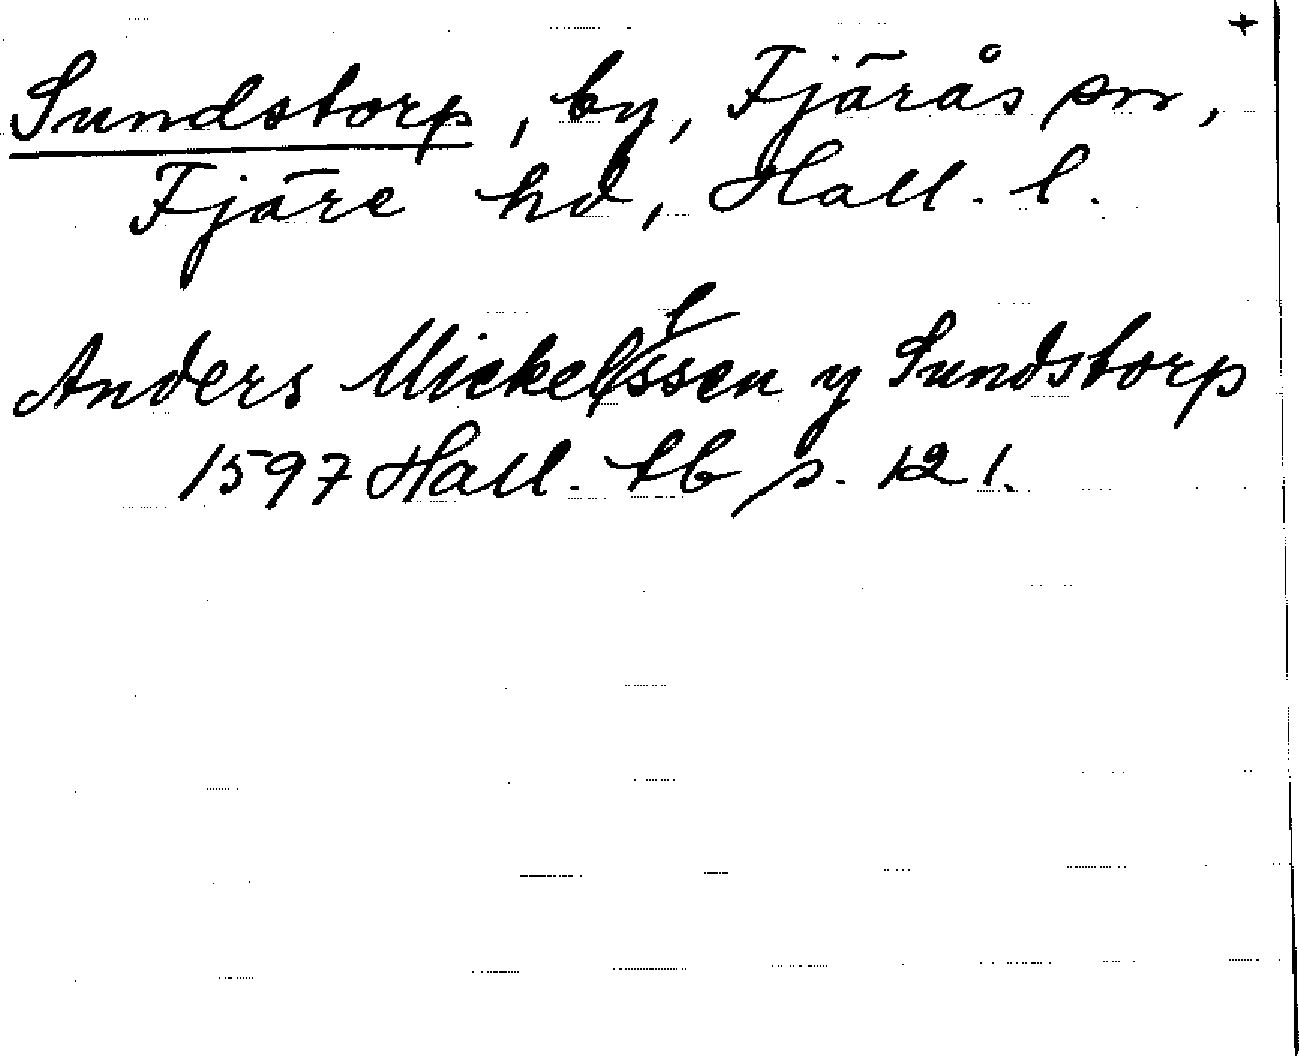 +
Sundstorp, by, Fjärås sn,
Fjäre hd, Hall. l.
Anders Mickelssen y Sundstorp
1597 Hall. tb s. 121.